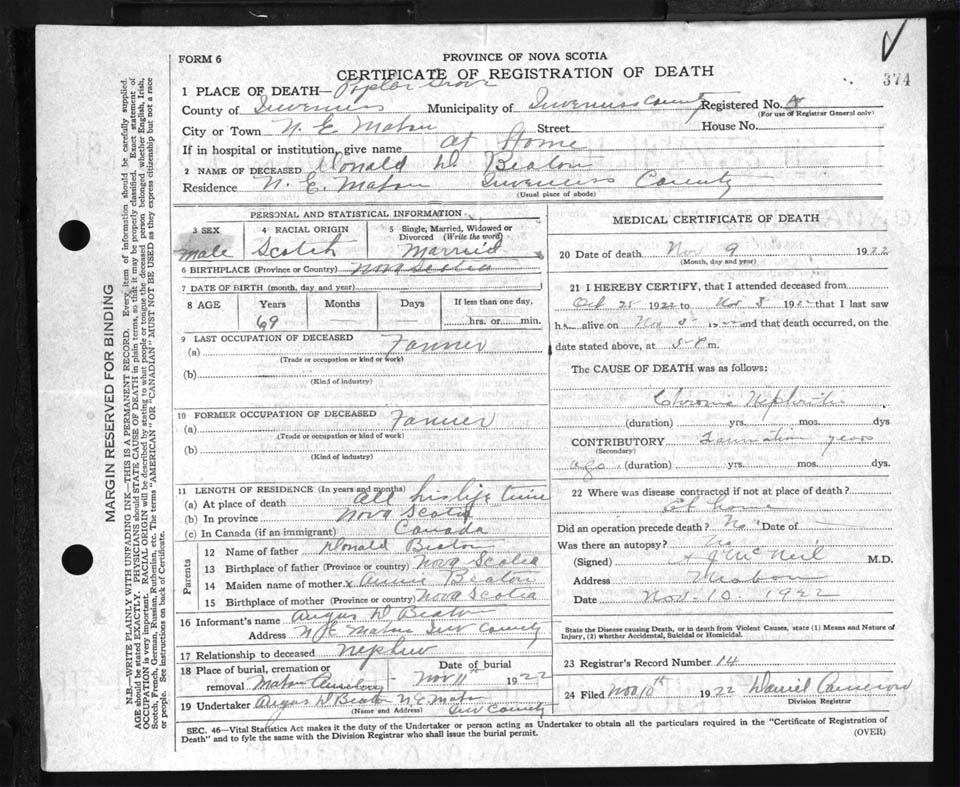 FORM 6
PROVINCE OF NOVA SCOTIA
CERTIFICATE OF REGISTRATION OF DEATH
374
1 PLACE OF DEATH— Poplar Grove
County of Inverness Municipality of Inverness County Registered No.
(For use of Registrar General only)
City or Town N. E. Mabou Street House No.
If in hospital or institution, give name at Home
2 NAME OF DECEASED Donald D Beaton
Residence N. E. Mabou Inverness County
(Usual place of abode)
PERSONAL AND STATISTICAL INFORMATION
3 SEX 4 RACIAL ORIGIN 5 Single, Married, Widowed or Divorced (Write the word)
male Scotch Married
6 BIRTHPLACE (Province or Country) Nova Scotia
7 DATE OF BIRTH (month, day and year)
8 AGE Years Months Days If less than one day,
69 hrs. or min.
9 LAST OCCUPATION OF DECEASED
(a) Farmer
(Trade or occupation or kind or work)
(b)
(Kind of industry)
10 FORMER OCCUPATION OF DECEASED
(a) Farmer
(Trade or occupation or kind of work)
(b)
(Kind of industry)
11 LENGTH OF RESIDENCE (In years and months)
(a) At place of death all his life time
(b) In province Nova Scotia
(c) In Canada (if an immigrant) Canada
Parents
12 Name of father Donald Beaton
13 Birthplace of father (Province or country) Nova Scotia
14 Maiden name of mother x Annie Beaton
15 Birthplace of mother (Province or country) Nova Scotia
16 Informant's name Angus D Beaton
Address N E Mabou Inv County
17 Relationship to deceased nephew
18 Place of burial, cremation or removal Mabou Date of burial Nov 11th 1922
19 Undertaker Angus D Beaton N. E. Mabou
(Name and Address) Inv County
MEDICAL CERTIFICATE OF DEATH
20 Date of death Nov 9 1922
(Month, day and year)
21 I HEREBY CERTIFY, that I attended deceased from
Oct 25 1922 to Nov 8 192 that I last saw
h alive on Nov 8 192 and that death occurred, on the
date stated above, at 5-P m.
The CAUSE OF DEATH was as follows:
Chronic Nephritis
(duration) yrs. mos. dys
CONTRIBUTORY years
(Secondary)
ago (duration) yrs. mos. dys.
22 Where was disease contracted if not at place of death?
at home
Did an operation precede death? No Date of
Was there an autopsy? No
(Signed) A J McNeil M.D.
Address Mabou
Date Nov. 10. 1922
State the Disease causing Death, or in death from Violent Causes, state (1) Means and Nature of
Injury, (2) whether Accidental, Suicidal or Homicidal.
23 Registrar's Record Number 14
24 Filed Nov 10th 1922 Daniel Cameron
Division Registrar
SEC. 46—Vital Statistics Act makes it the duty of the Undertaker or person acting as Undertaker to obtain all the particulars required in the "Certificate of Registration of
Death" and to fyle the same with the Division Registrar who shall issue the burial permit.
(OVER)
MARGIN RESERVED FOR BINDING
N.B.—WRITE PLAINLY WITH UNFADING INK—THIS IS A PERMANENT RECORD. Every item of information should be carefully supplied.
AGE should be stated EXACTLY. PHYSICIANS should STATE CAUSE OF DEATH in plain terms, so that it may be properly classified. Exact statement of
OCCUPATION is very important. RACIAL ORIGIN will be described by stating to what people or tongue the deceased person belonged whether English, Irish,
Scotch, French, German, Russian, Ruthenian, etc. The terms "AMERICAN" OR "CANADIAN" MUST NOT BE USED as they express citizenship but not a race
or people. See instructions on back of Certificate.